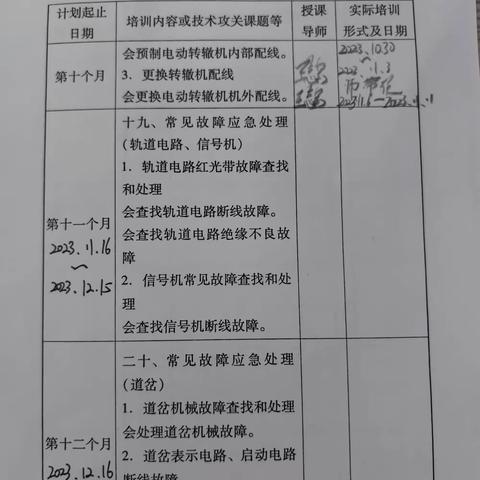 计划起止
日期
培训内容或技术攻关课题等
授课
导师
实际培训
形式及日期
第十个月
会预制电动转辙机内部配线。
3．更换转辙机配线
会更换电动转辙机机外配线。
2023.10.30
~
2023.11.3
2023.11.6—2023.11.11
第十一个月
2023.11.16
~
2023.12.15
十九、常见故障应急处理
（轨道电路、信号机）
1．轨道电路红光带故障查找
和处理
会查找轨道电路断线故障。
会查找轨道电路绝缘不良故
障
2．信号机常见故障查找和处
理
会查找信号机断线故障。
第十二个月
2023.12.16
二十、常见故障应急处理
（道岔）
1．道岔机械故障查找和处理
会处理道岔机械故障。
2．道岔表示电路、启动电路
断线故障